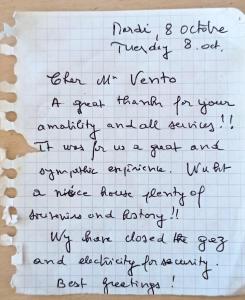 Mardi, 8 Octobre
Tuesday 8 oct.
Cher Mr Vento
A great thanks for your
amability and all services!!
It was for us a great and
sympathic experience. What
a niece house plenty of
souvenirs and history!!
Wy have closed the gaz
and electricity for security.
Best greetings!